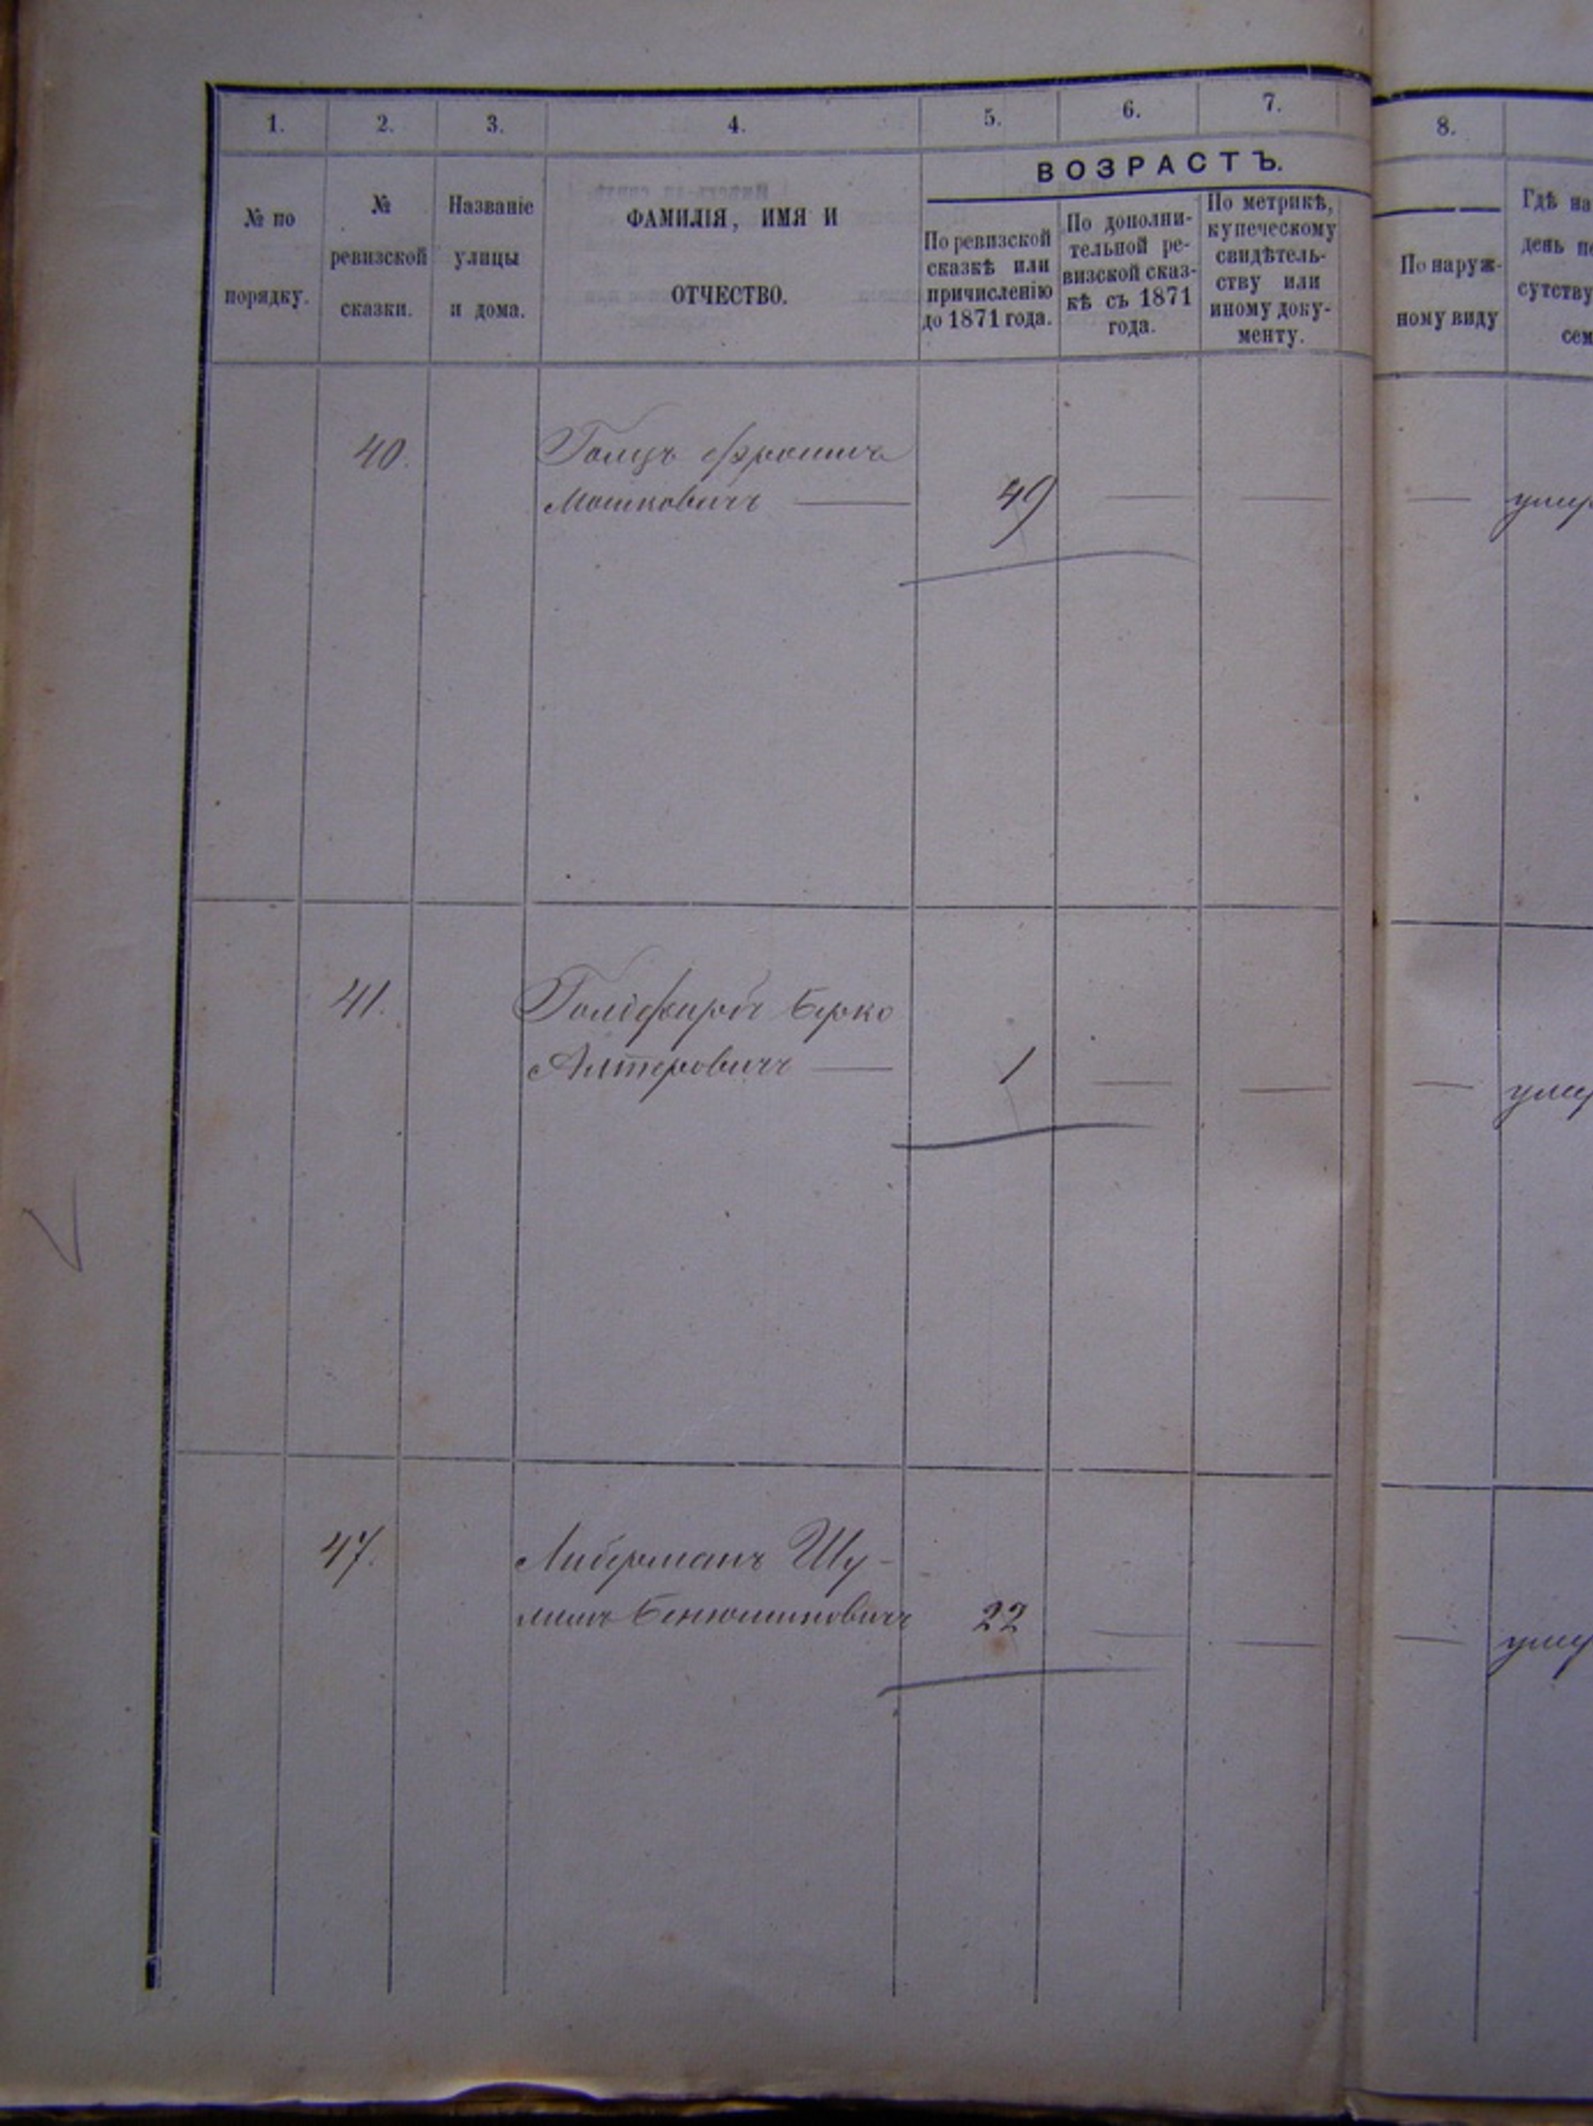 1.
2.
3.
4.
5.
6.
7.
8.
№ по
порядку.
№
ревизской
сказки.
Названіе
улицы
и дома.
ФАМИЛІЯ, ИМЯ И
ОТЧЕСТВО.
ВОЗРАСТЪ.
По ревизской
сказкѣ или
причисленію
до 1871 года.
По дополни-
тельной ре-
визской сказ-
кѣ съ 1871
года.
По метрикѣ,
купеческому
свидѣтель-
ству или
иному доку-
менту.
По наруж-
ному виду
Гдѣ на
день
сутству
сем
40.
Гольцъ
Мошковичъ — 49 — — — умер
41.
Голдфарбъ Берко
Алтеровичъ — 1 — — — умер
47.
Либерманъ Шу-
лимъ Бенюминовичъ 22 — — — умер